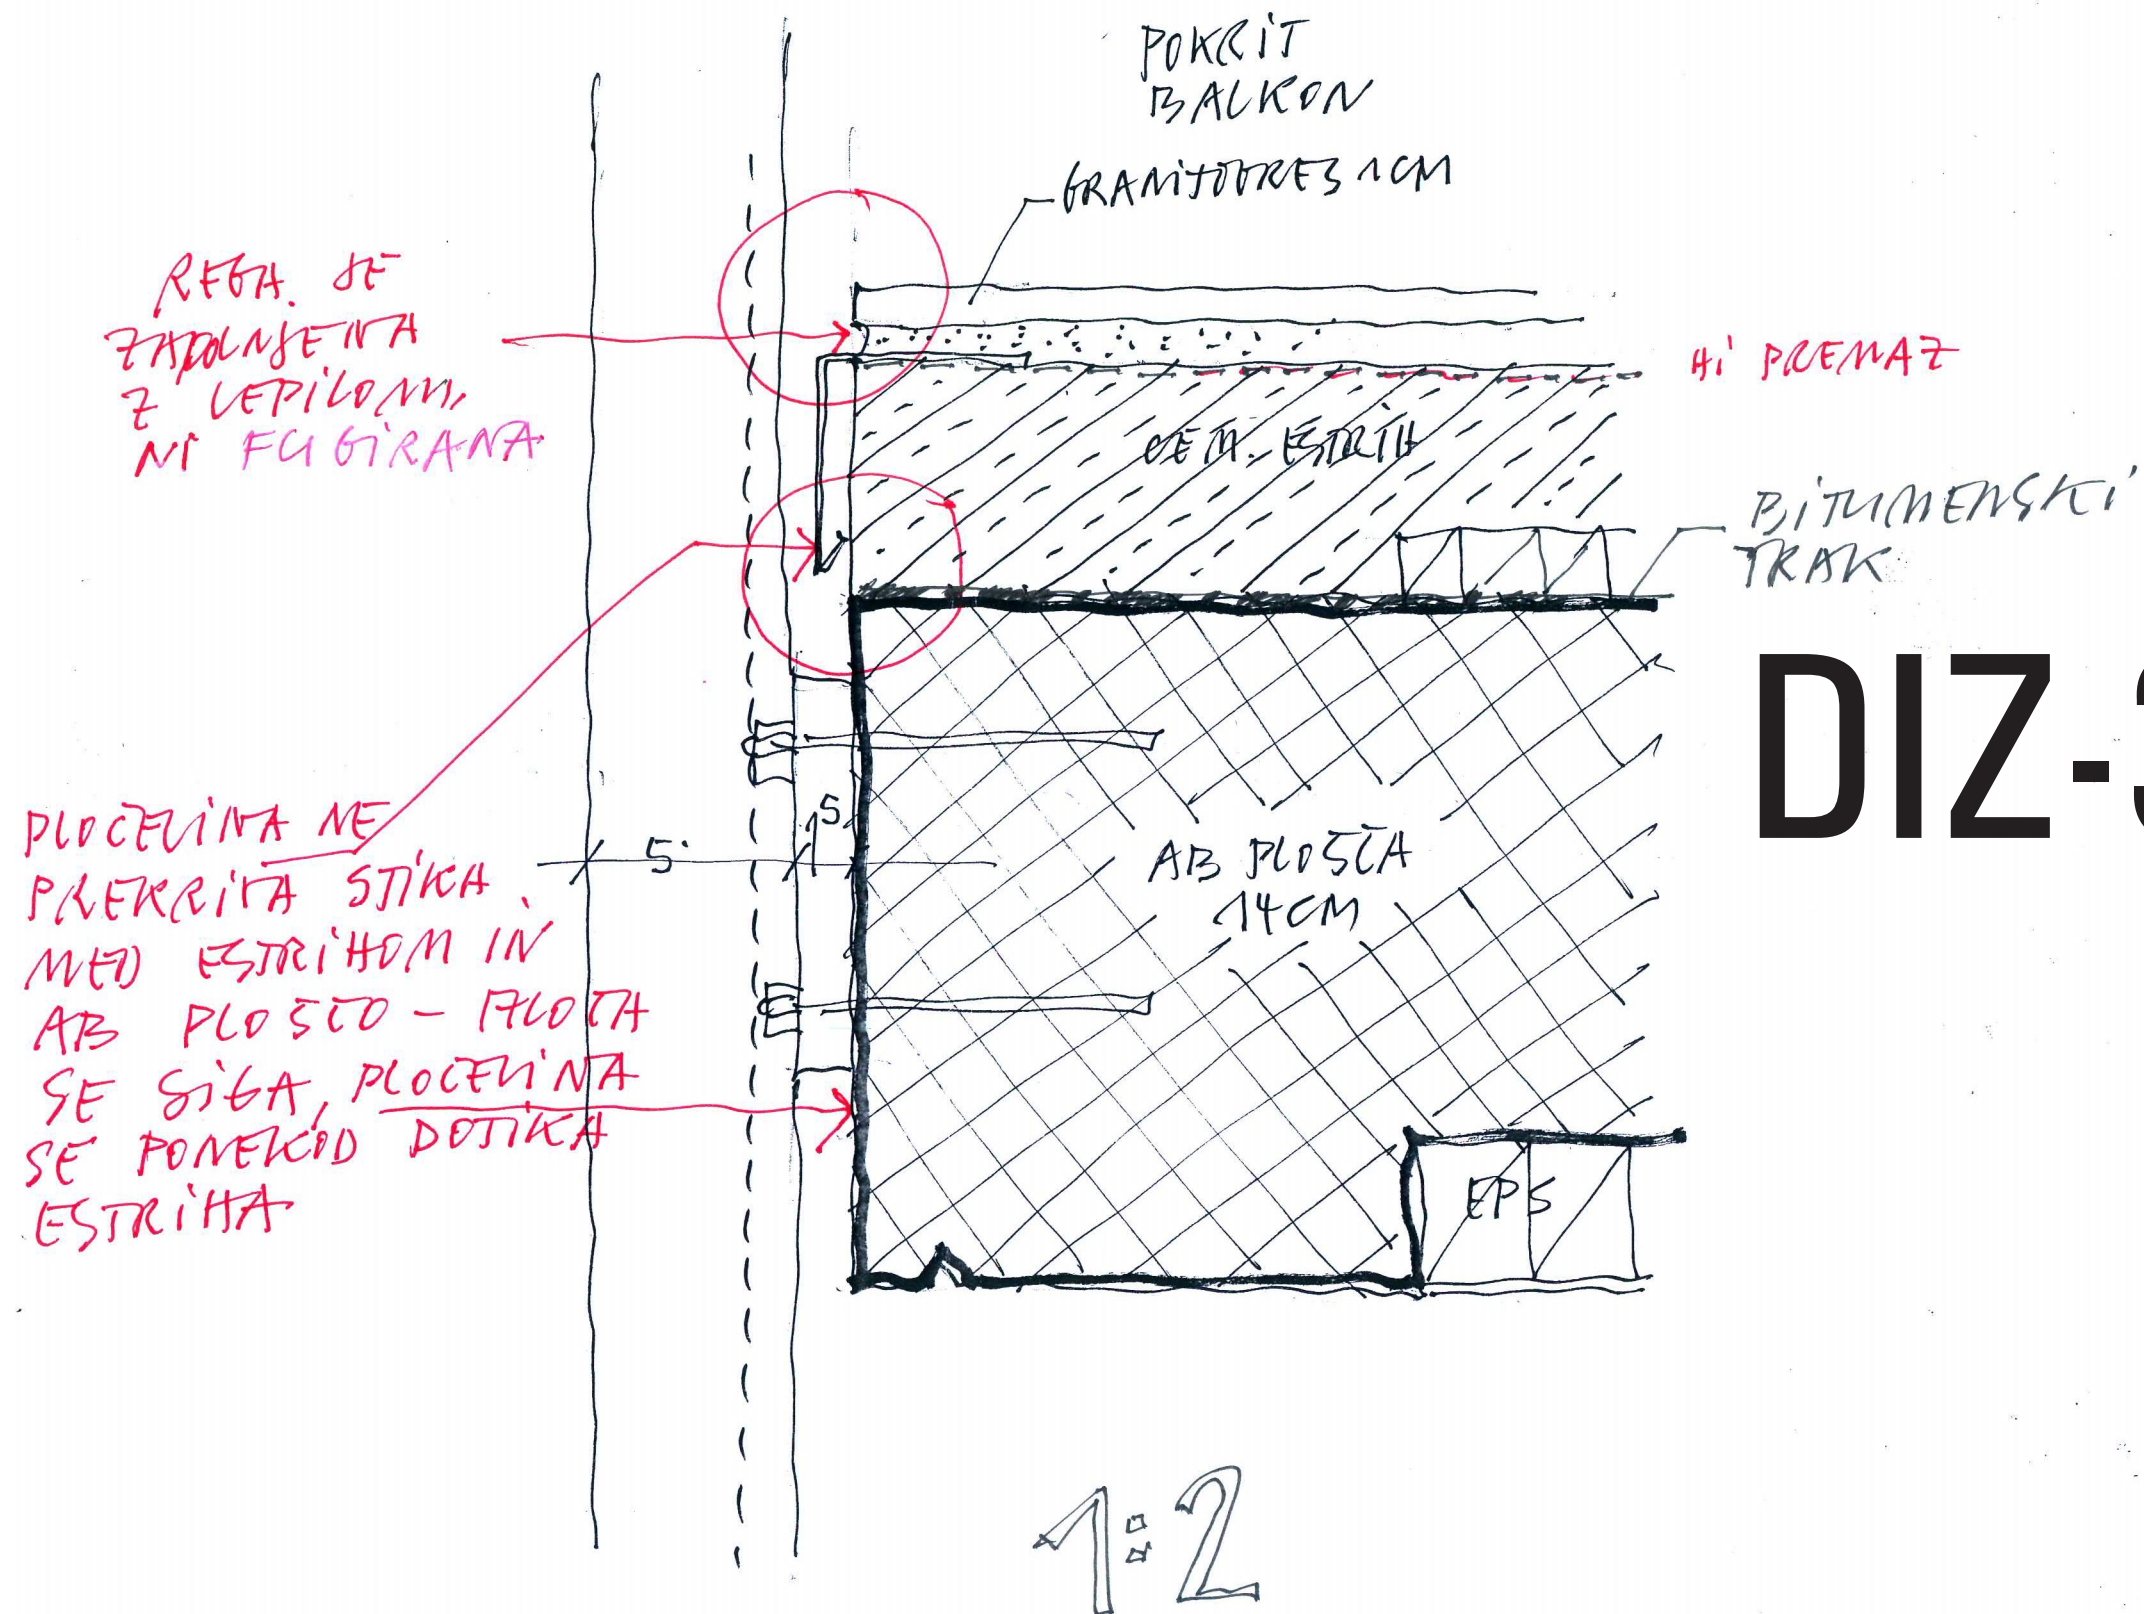 POKRIT
BALKON
GRANITOGRES 1CM
REGA JE
ZAPOLNJENA
Z LEPILOM,
NI FUGIRANA
HI PREMAZ
CEM. ESTRIH
BITUMENSKI
TRAK
DIZ-
PLOČEVINA NE
PREKRIVA STIKA
MED ESTRIHOM IN
AB PLOŠČO - IZLOČA
SE SIGA, PLOČEVINA
SE PONEKOD DOTIKA
ESTRIHA
5
1 5
AB PLOŠČA
14CM
EPS
1:2